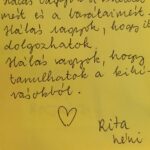 Hálás vagyok a családo-
mért és a barátaimért.
Hálás vagyok, hogy itt
dolgozhatok.
Hálás vagyok, hogy
tanulhatok a kihí-
vásokból.
Rita
néni